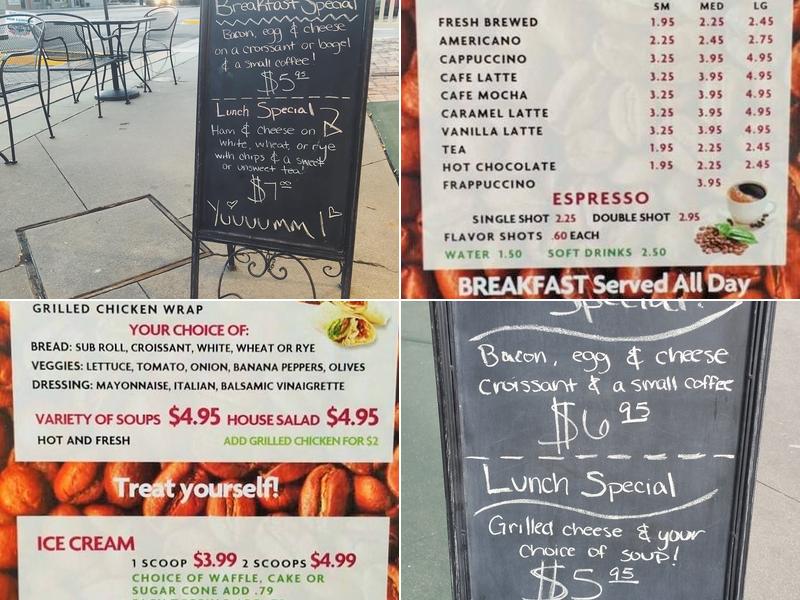 Breakfast Special
Bacon, egg & cheese
on a croissant or bagel
& a small coffee!
$5.95
Lunch Special
Ham & cheese on
white, wheat, or rye
with chips & a sweet
or unsweet tea!
$7.00
Yuuuumm!
SM MED LG
FRESH BREWED 1.95 2.25 2.45
AMERICANO 2.25 2.45 2.75
CAPPUCCINO 3.25 3.95 4.95
CAFE LATTE 3.25 3.95 4.95
CAFE MOCHA 3.25 3.95 4.95
CARAMEL LATTE 3.25 3.95 4.95
VANILLA LATTE 3.25 3.95 4.95
TEA 1.95 2.25 2.45
HOT CHOCOLATE 1.95 2.25 2.45
FRAPPUCCINO 3.95
ESPRESSO
SINGLE SHOT 2.25 DOUBLE SHOT 2.95
FLAVOR SHOTS .60 EACH
WATER 1.50 SOFT DRINKS 2.50
BREAKFAST Served All Day
GRILLED CHICKEN WRAP
YOUR CHOICE OF:
BREAD: SUB ROLL, CROISSANT, WHITE, WHEAT OR RYE
VEGGIES: LETTUCE, TOMATO, ONION, BANANA PEPPERS, OLIVES
DRESSING: MAYONNAISE, ITALIAN, BALSAMIC VINAIGRETTE
VARIETY OF SOUPS $4.95 HOUSE SALAD $4.95
HOT AND FRESH ADD GRILLED CHICKEN FOR $2
Treat yourself!
ICE CREAM
1 SCOOP $3.99 2 SCOOPS $4.99
CHOICE OF WAFFLE, CAKE OR
SUGAR CONE ADD .79
Special!
Bacon, egg & cheese
croissant & a small coffee
$6.95
Lunch Special
Grilled cheese & your
choice of soup!
$5.95